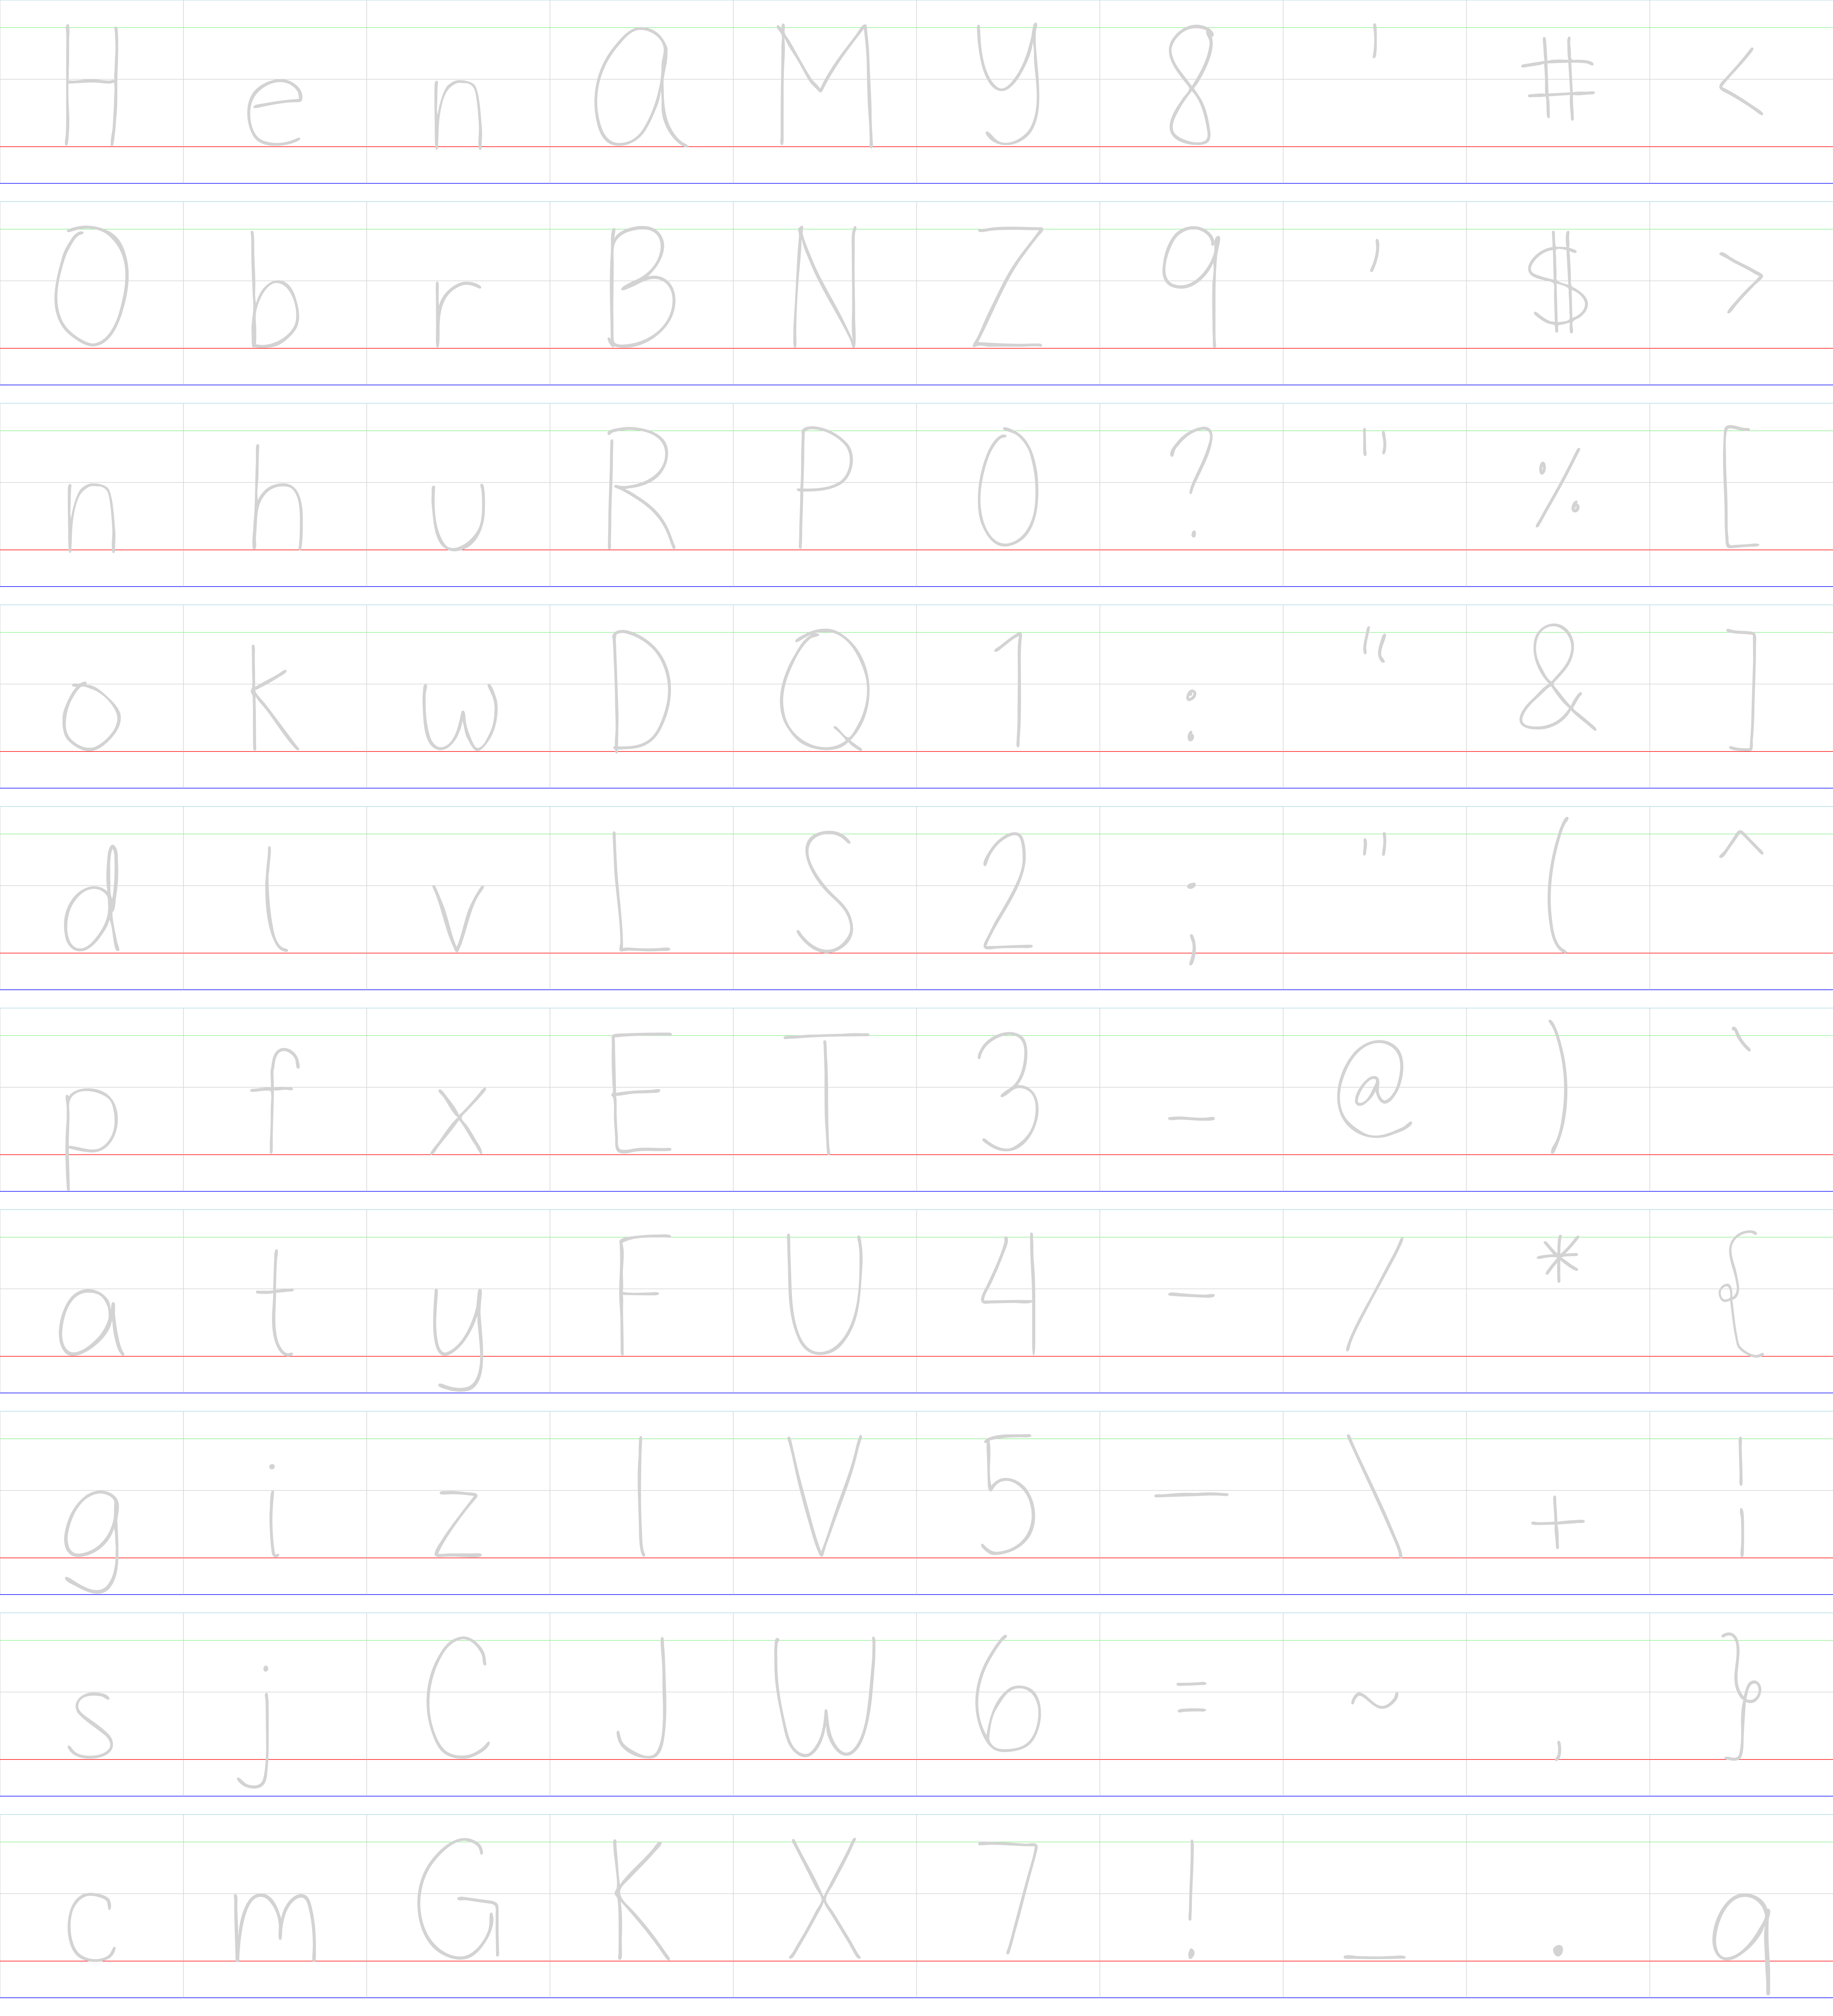 H e n a M y 8 ' # <
O b r B N Z 9 ' $ >
n h u R P 0 ? " % [
o k w D Q 1 : " & ]
d l v L S 2 ; " ( ^
p f x E T 3 - @ ) `
a t y F U 4 - / * {
g i z I V 5 — \ + ¦
s j C J W 6 = ~ , }
c m G K X 7 ! _ . q